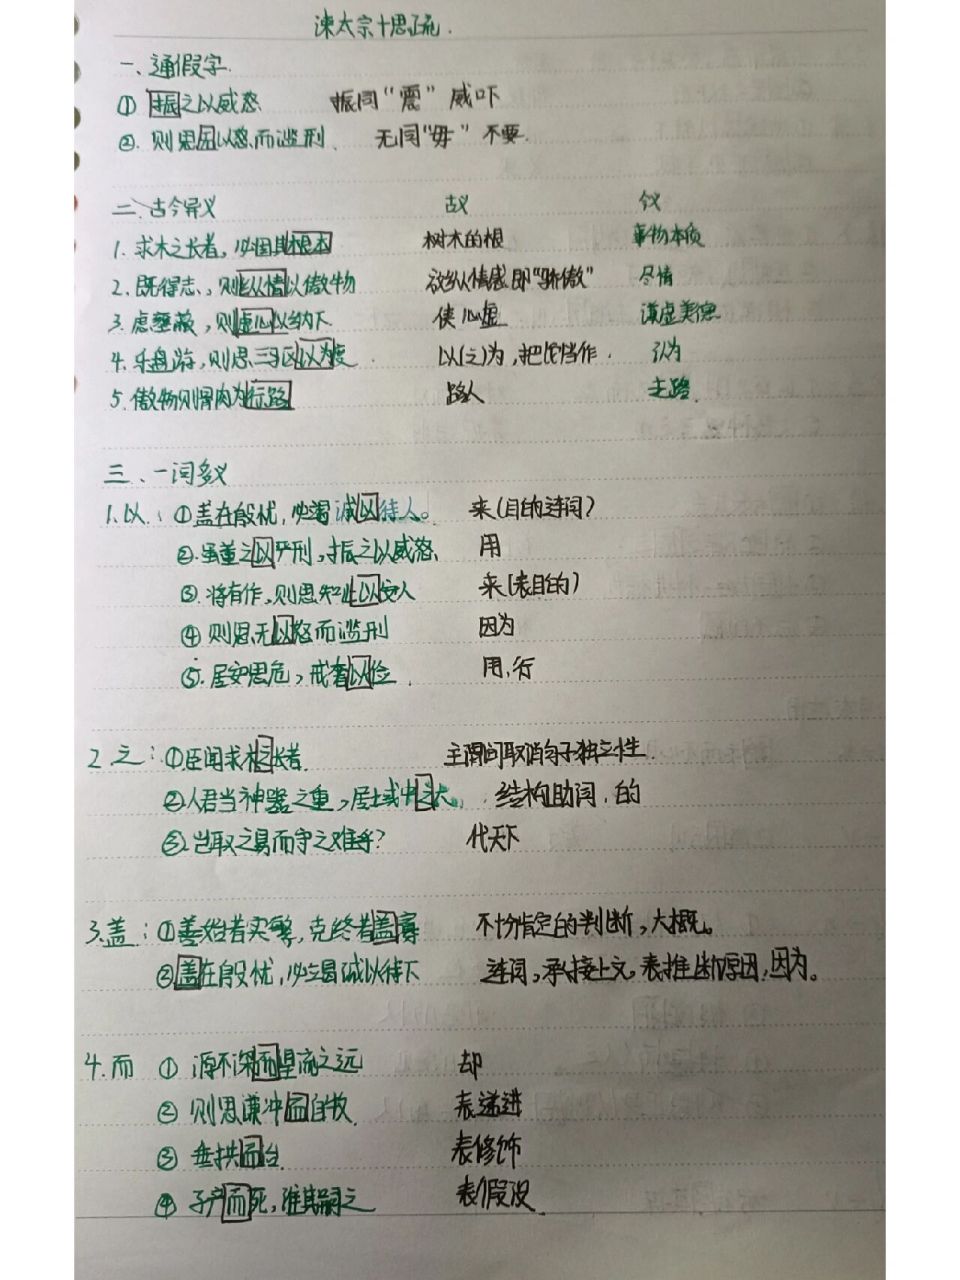 谏太宗十思疏.
一、通假字.
① 振之以威怒 振同“震” 威吓
②. 则思因以怒而滥刑 无同“毋” 不要.
二、古今异义 古义 今义
1. 求木之长者，必固其根本 树木的根 事物本质
2. 既得志，则纵情以傲物 放纵情感即“骄傲” 尽情
3. 虑壅蔽，则虚心以纳下 使心虚 谦虚美德
4. 乐盘游，则思三驱以为度. 以(之)为，把它当作. 认为
5. 傲物则骨肉为行路 路人 走路.
三、一词多义
1. 以：①盖在殷忧，必竭诚以待人。 来(目的连词)
②. 虽董之以严刑，振之以威怒. 用
③. 将有作，则思知止以安人 来(表目的)
④ 则思无以怒而滥刑 因为
⑤. 居安思危，戒奢以俭. 用，行
2. 之：①臣闻求木之长者. 主谓间取消句子独立性.
②人君当神器之重，居域中之大。 结构助词，的
③. 岂取之易而守之难乎？ 代天下
3. 盖：①善始者实繁，克终者盖寡 不十分肯定的判断，大概。
②盖在殷忧，必竭诚以待下 连词，承接上文，表推断原因，因为。
4. 而 ① 源不深而望流之远 却
② 则思谦冲而自牧 表递进
③ 垂拱而治. 表修饰
④ 子产而死，谁其嗣之 表假设.